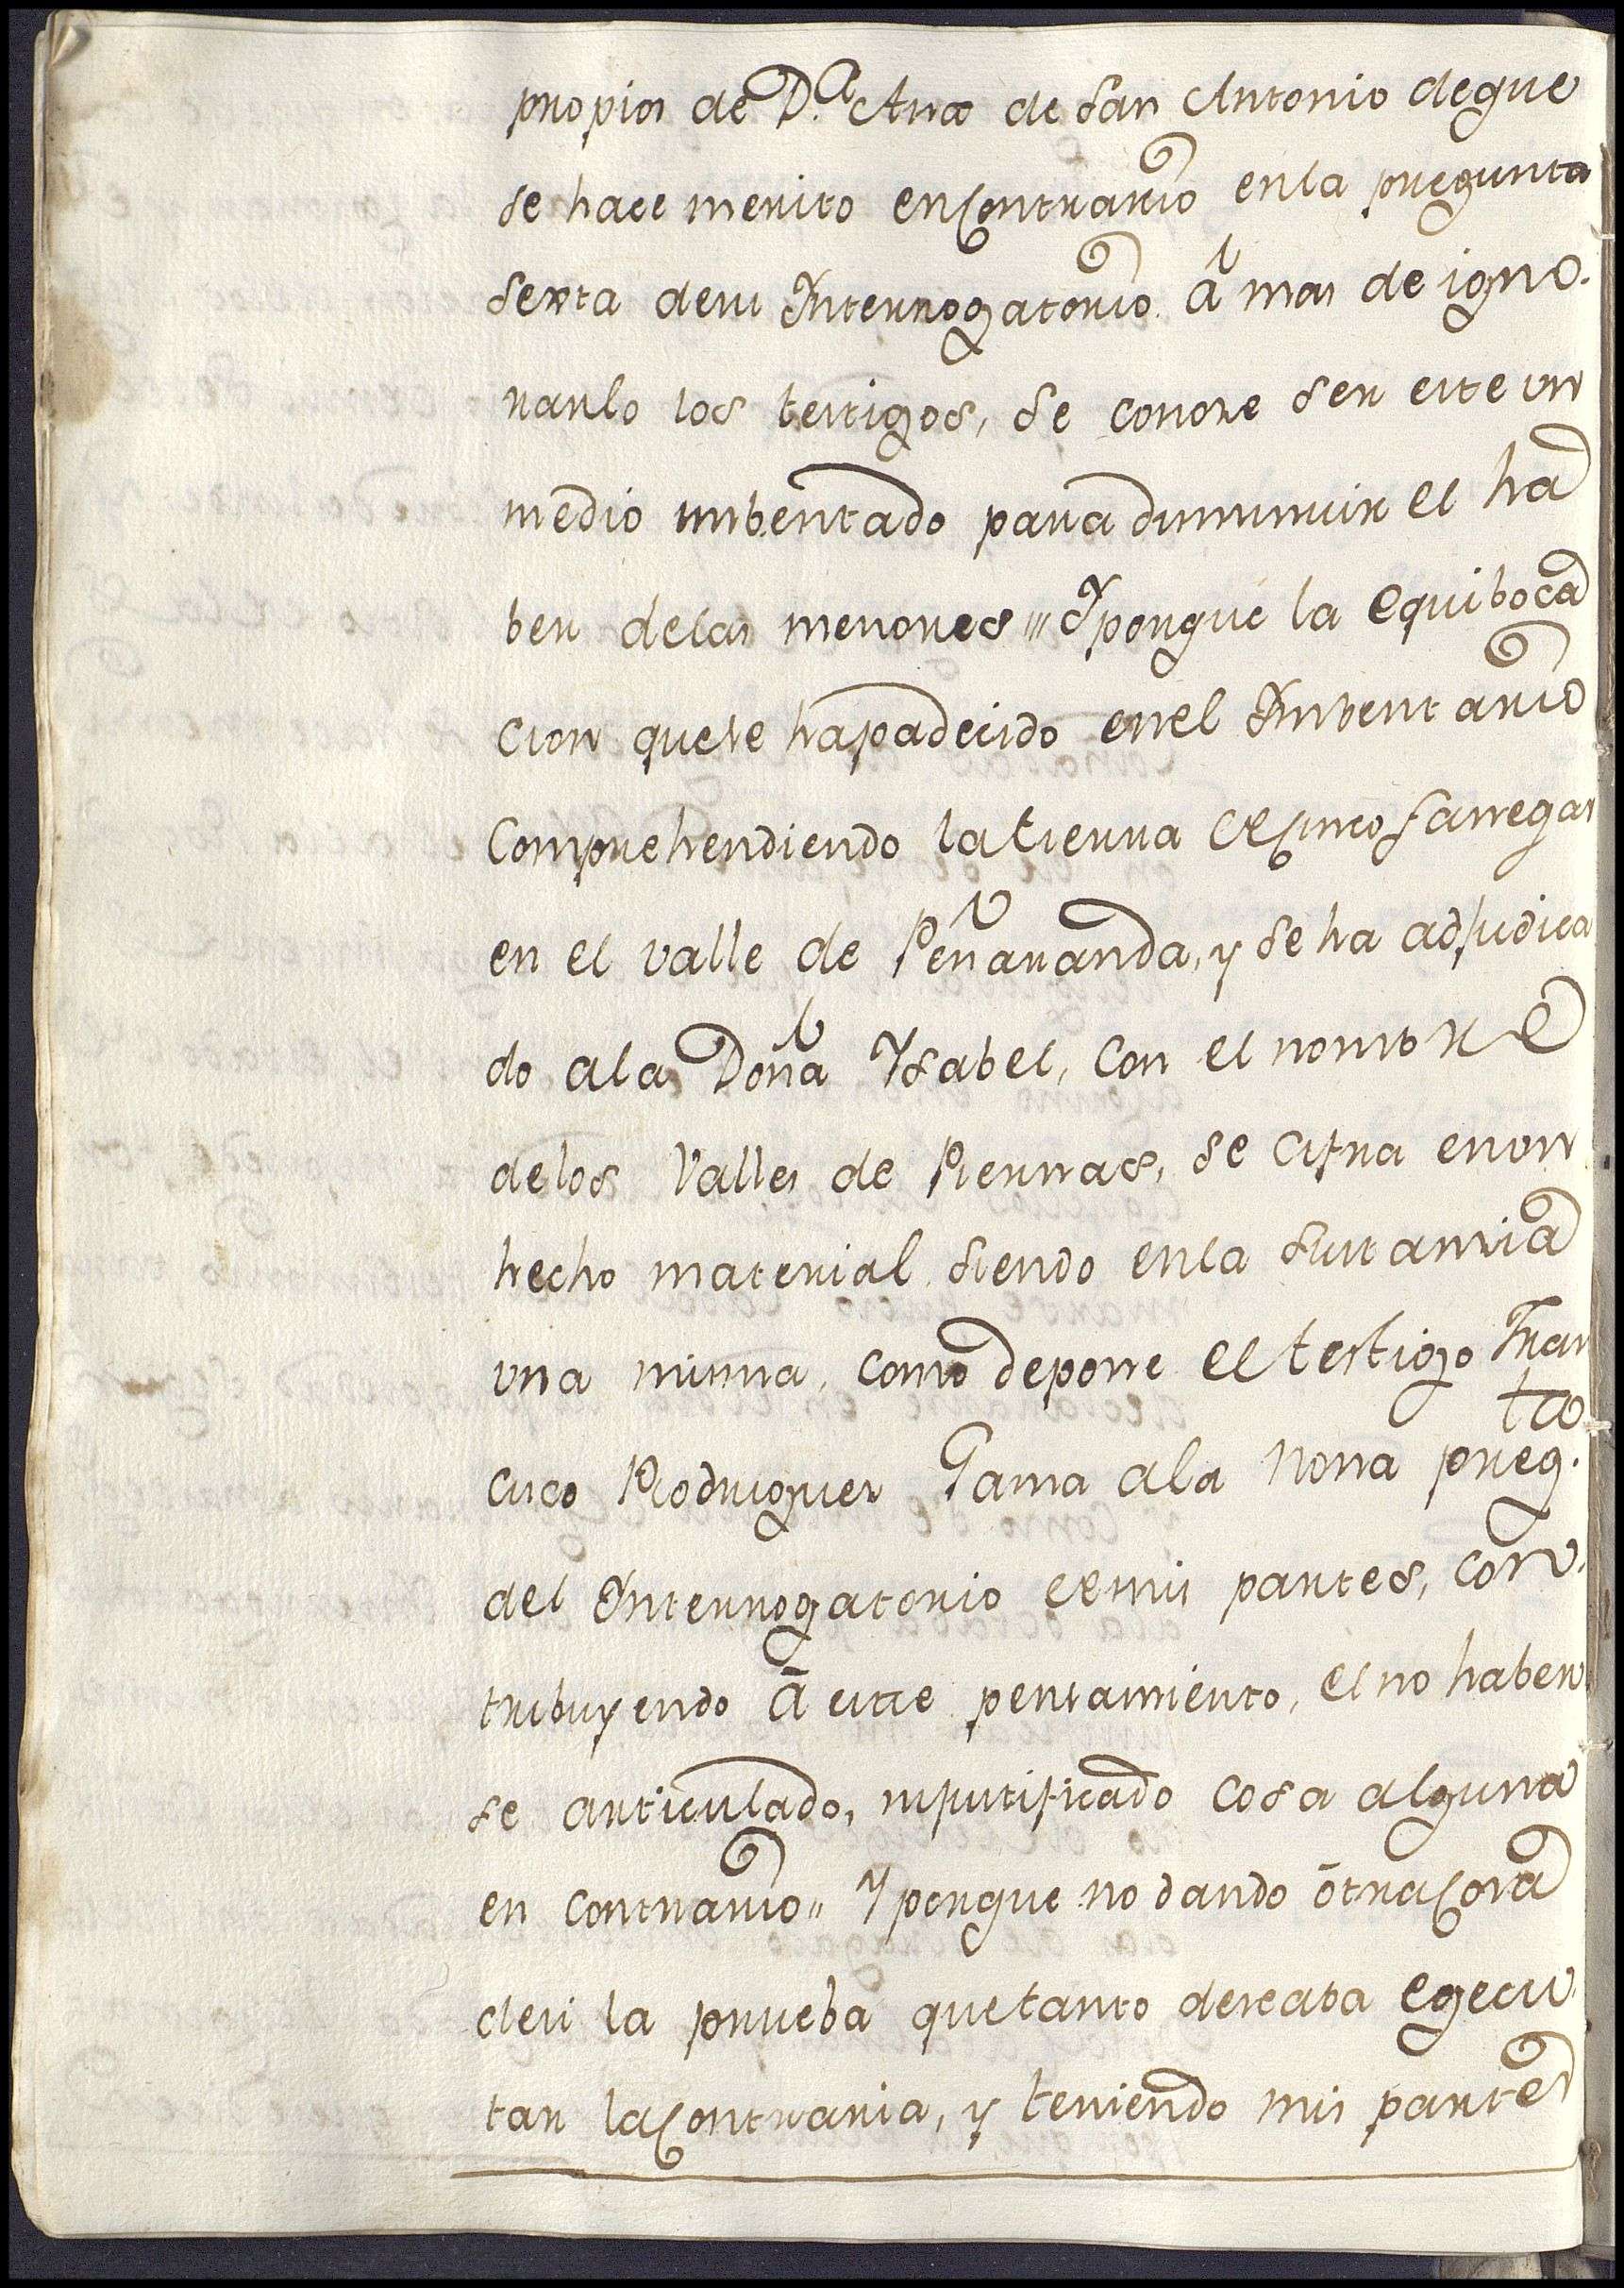 propios de D.ª Ana de San Antonio deque
se hace merito encontrario enla pregunta
sexta desu Interrogatorio à mas de igno-
rarlo los testigos, se conoze ser este un
medio imbentado para disminuir el ha
ber delas menores,,, Y porque la equiboca
cion quese hapadecido enel Imbentario
Comprehendiendo latierra de cinco fanegas
en el valle de Peñaranda, y se ha adjudica
do ala Doña Ysabel, con el nombre
delos Valles de Piernas, se cifra enun
hecho material siendo enla sustancia
una misma, como depone el testigo Fran
cisco Rodriguez Gama ala Nona preg.ta
del Interrogatorio de mis partes, con-
tribuyendo à este pensamiento, el no haber-
se articulado, nijustificado cosa alguna
en contrario,, Y porque no dando òtra cosa
desi la prueba quetanto deseaba egecu-
tar lacontraria, y teniendo mis partes